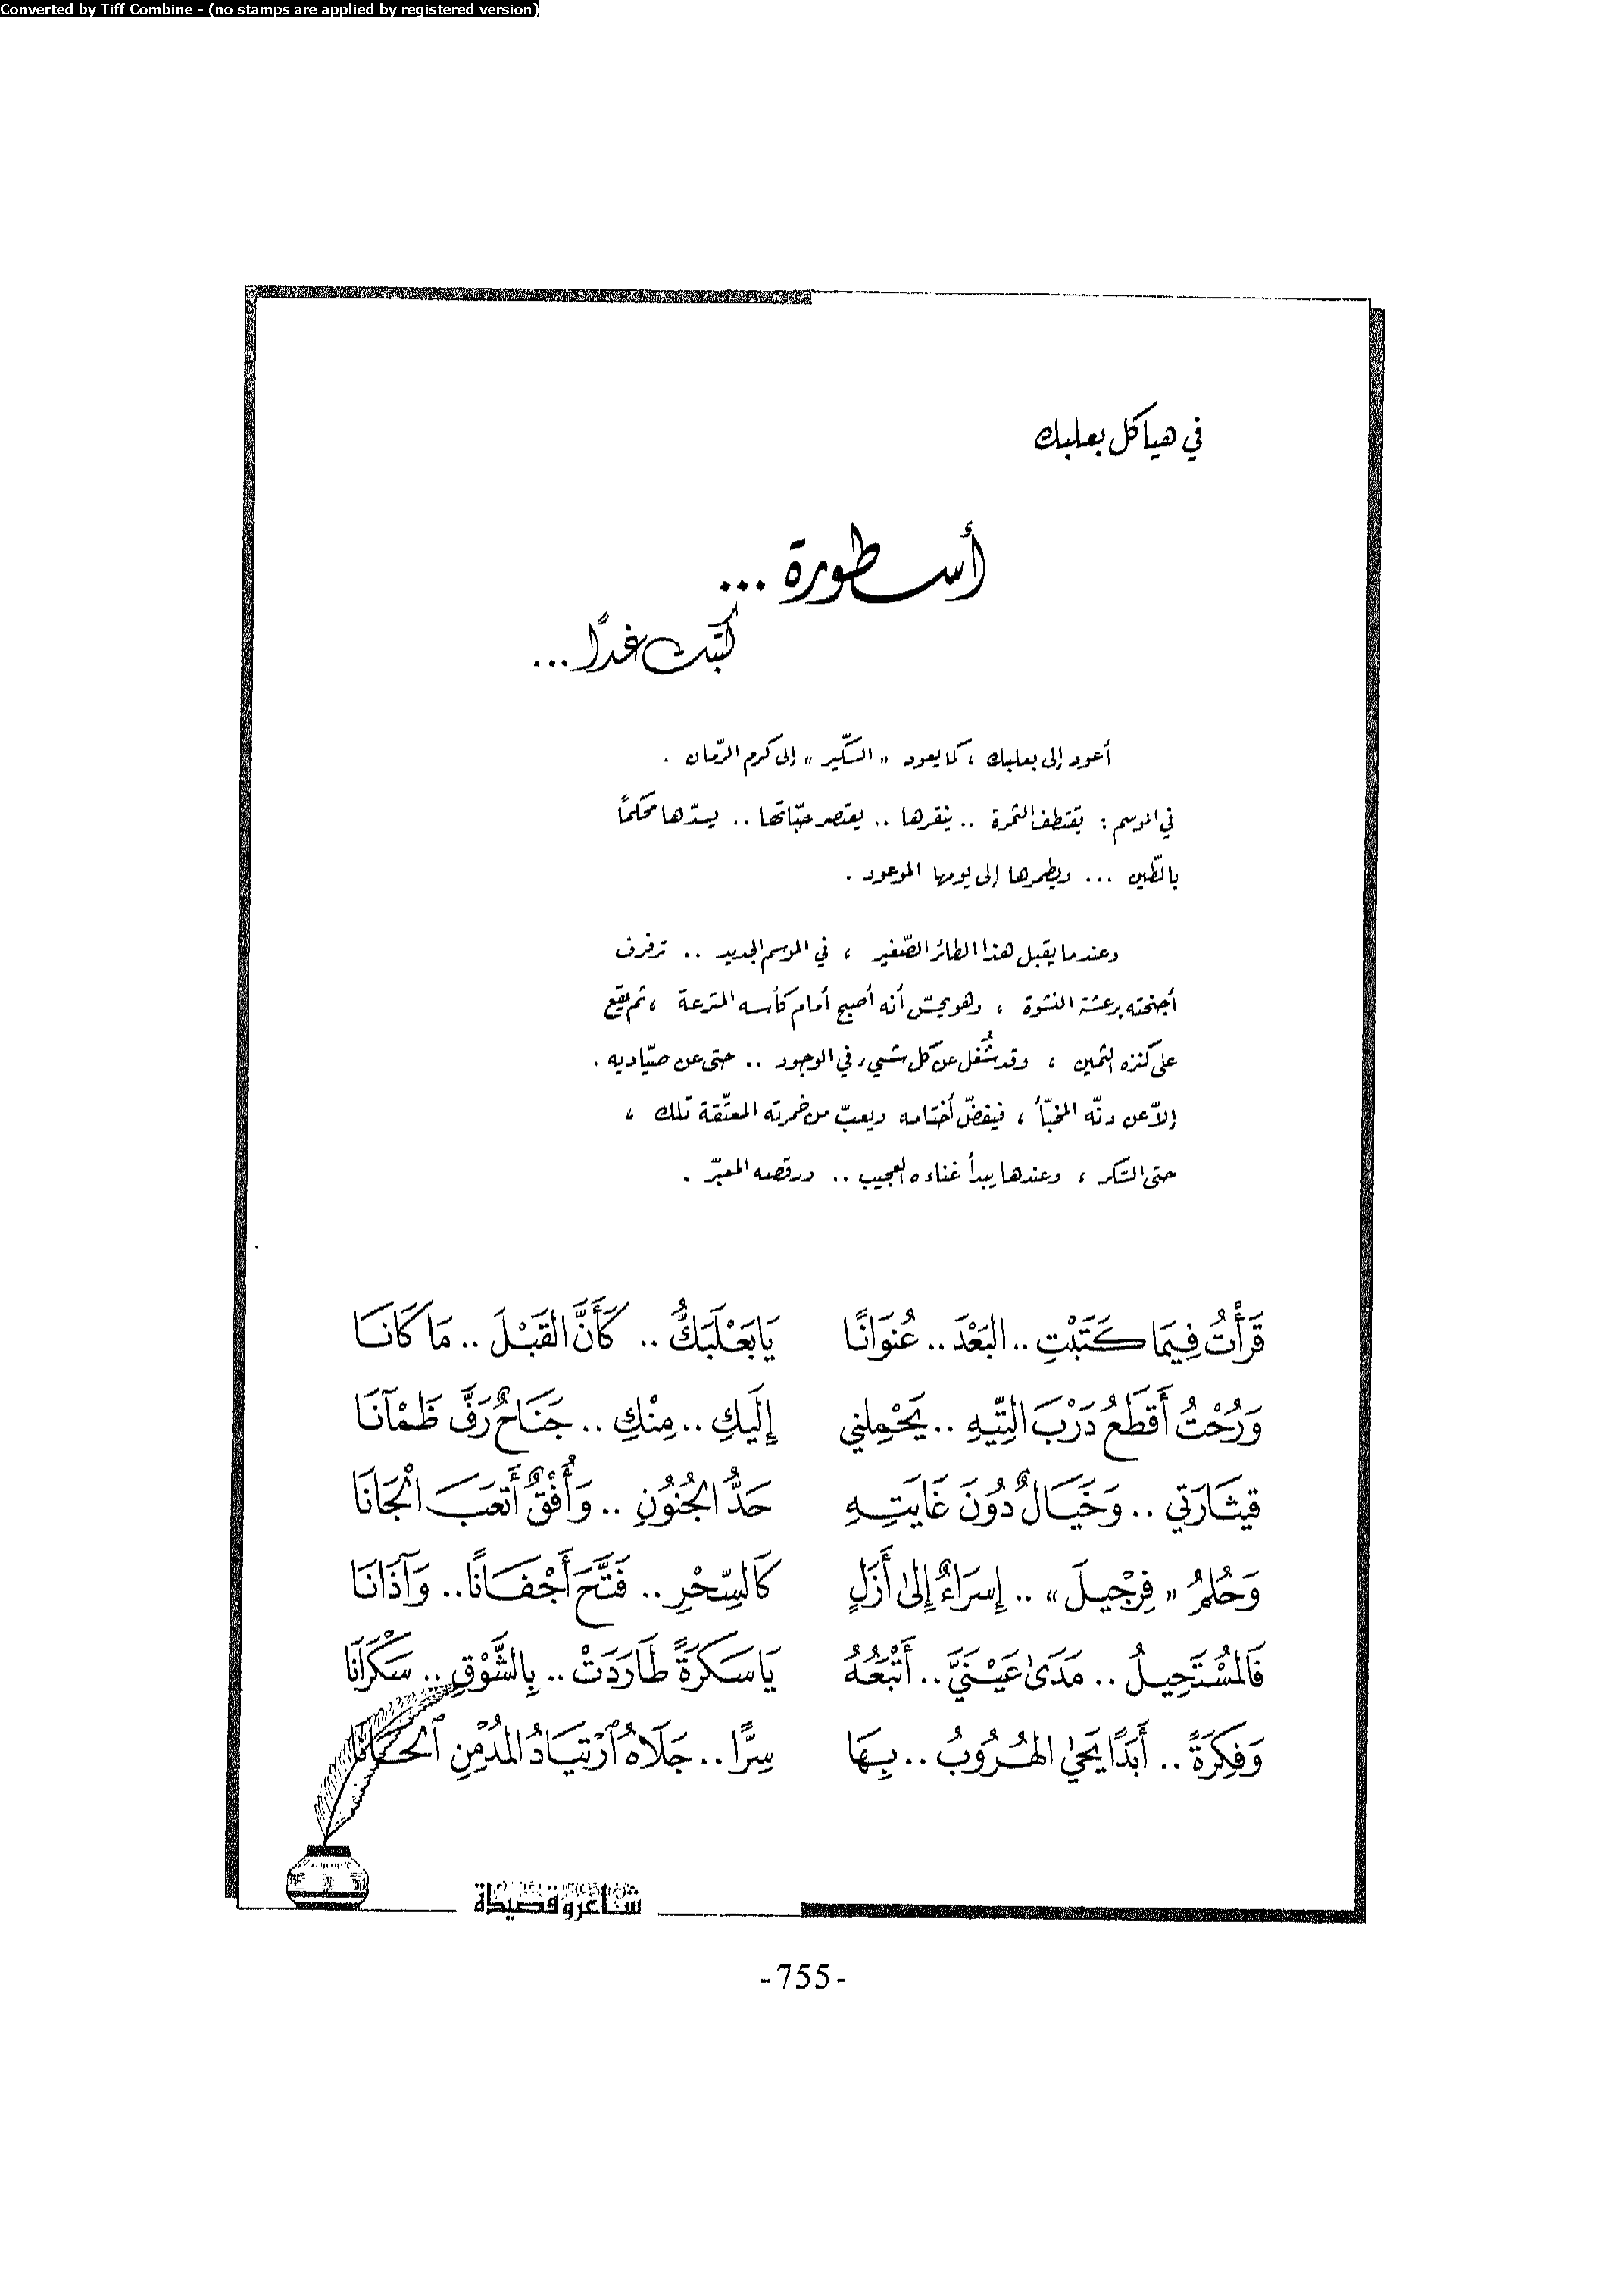 Converted by Tiff Combine - (no stamps are applied by registered version)
في هياكل بعلبك
أسطورة ...
كتبت غدًا ...
أعود إلى بعلبك ، كما يعود « السكّير » إلى كرم الرّمان .
في الموسم : يقتطف الثمرة .. ينقرها .. يعتصر حبّاتها .. يسدّها محكمًا
بالطّين ... ويطمرها إلى يومها الموعود .
وعندما يقبل هذا الطائر الصّغير ، في الموسم الجديد .. ترفرف
أجنحته برعشة النشوة ، وهو يحسّ أنه أصبح أمام كأسه المترعة ، ثم يقع
على كنزه الثمين ، وقد شُغل عن كل شيء في الوجود .. حتى عن صيّاديه .
إلاّ عن دنّه المخبّأ ، فيفضّ أختامه ويعبّ من خمرته المعتّقة تلك ،
حتى السّكر ، وعندها يبدأ غناءه العجيب .. ورقصه المعبّر .
قَرَأْتُ فِيمَا كَتَبْتِ .. البَعْدَ .. عُنوَانًا يَا بَعْلَبَكُّ .. كَأَنَّ القَبْلَ .. مَا كَانَا
وَرُحْتُ أَقطَعُ دَرْبَ التِّيهِ .. يَحْمِلني إِلَيكِ .. مِنْكِ .. جَنَاحٌ رَفَّ ظَمْآنَا
قيثَارَتي .. وَخَيَالٌ دُونَ غَايَتِهِ حَدُّ الجُنُونِ .. وَأُفْقٌ أَتعَبَ الْجَانَا
وَحُلمُ « فِرْجيلَ » .. إِسرَاءٌ إِلى أَزَلٍ كَالسِّحْرِ .. فَتَّحَ أَجْفَانًا .. وَآذَانَا
فَالمُسْتَحِيلُ .. مَدَى عَيْنَيَّ .. أَتْبَعُهُ يَا سَكرَةً طَارَدَتْ .. بِالشَّوْقِ .. سَكْرَانَا
وَفِكرَةً .. أَبَدًا يَحيَى الهُرُوبُ .. بِهَا سِرًّا .. جَلَاهُ ارْتيَادُ المُدْمِنِ الحَانَا
شاعر وقصيدة
-755-